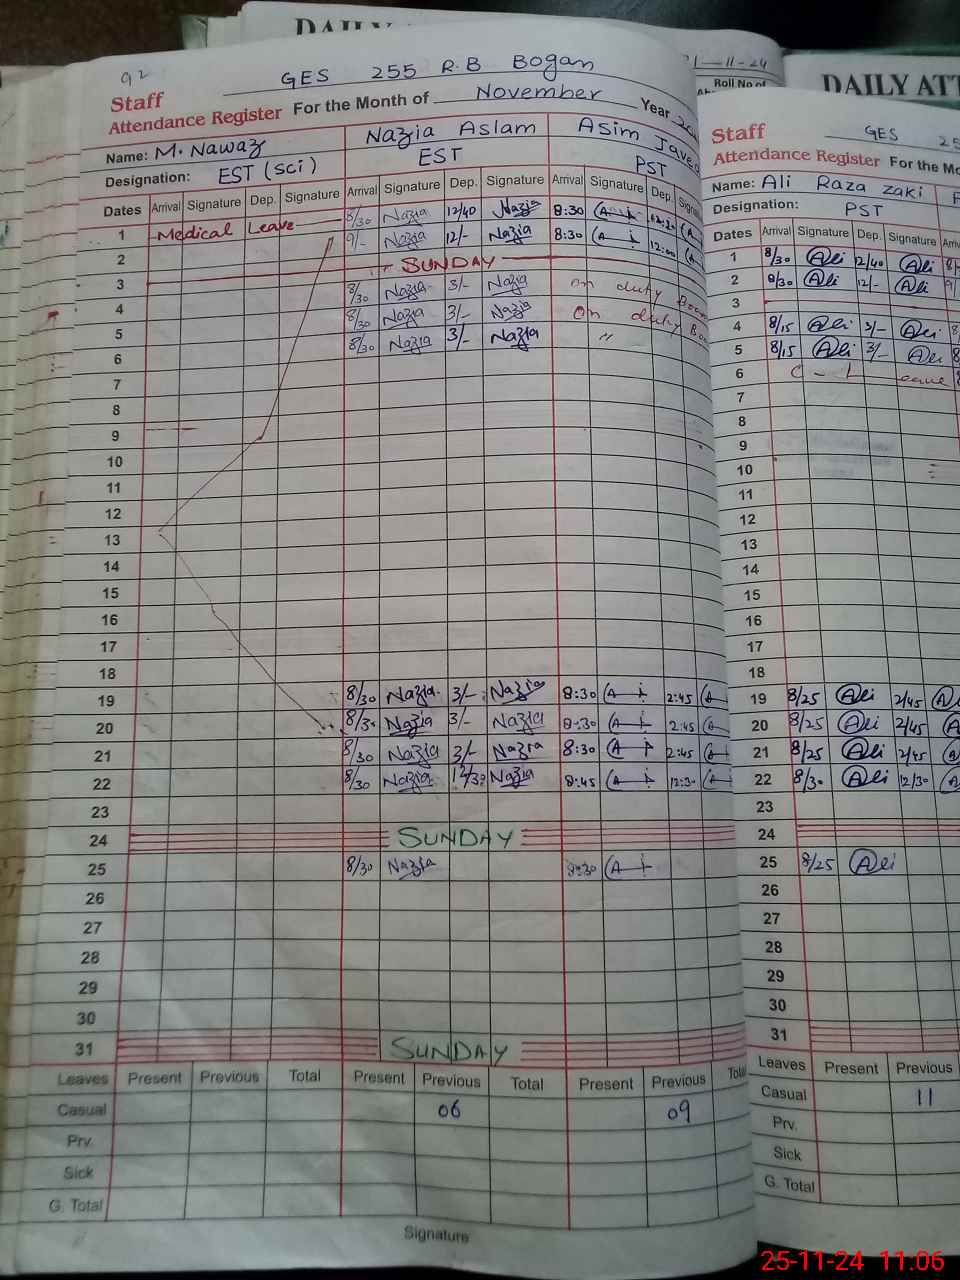 DAILY
21-11-24
Roll No of
DAILY ATT
92
GES 255 R.B Bogan
Staff
Attendance Register For the Month of November Year
Name: M. Nawaz Nazia Aslam Asim Javed
Designation: EST (sci) EST PST
Dates Arrival Signature Dep. Signature Arrival Signature Dep. Signature Arrival Signature Dep.
1 Medical Leave 8/30 Nazia 12/40 Nazia 8:30
2 9/- Nazia 12/- Nazia 8:30 12:00
3 SUNDAY
4 8/30 Nazia 3/- Nazia on duty
5 8/30 Nazia 3/- Nazia On duty
6 8/30 Nazia 3/- Nazia "
7
8
9
10
11
12
13
14
15
16
17
18
19 8/30 Nazia 3/- Nazia 8:30 2:45
20 8/30 Nazia 3/- Nazia 8:30 2:45
21 8/30 Nazia 3/- Nazia 8:30 2:45
22 8/30 Nazia 12/30 Nazia 8:45 12:30
23
24 SUNDAY
25 8/30 Nazia 8:30
26
27
28
29
30
31 SUNDAY
Leaves Present Previous Total Present Previous Total Present Previous Total
Casual 06 09
Prv.
Sick
G. Total
Signature
Staff
GES
Attendance Register For the
Name: Ali Raza Zaki
Designation: PST
Dates Arrival Signature Dep. Signature
1 8/30 Ali 12/40 Ali
2 8/30 Ali 12/- Ali
3
4 8/15 Ali 3/- Ali
5 8/15 Ali 3/- Ali
6 C - L leave
7
8
9
10
11
12
13
14
15
16
17
18
19 8/25 Ali 2/45
20 8/25 Ali 2/45
21 8/25 Ali 2/45
22 8/30 Ali 12/30
23
24
25 8/25 Ali
26
27
28
29
30
31
Leaves Present Previous
Casual 11
Prv.
Sick
G. Total
25-11-24 11:06